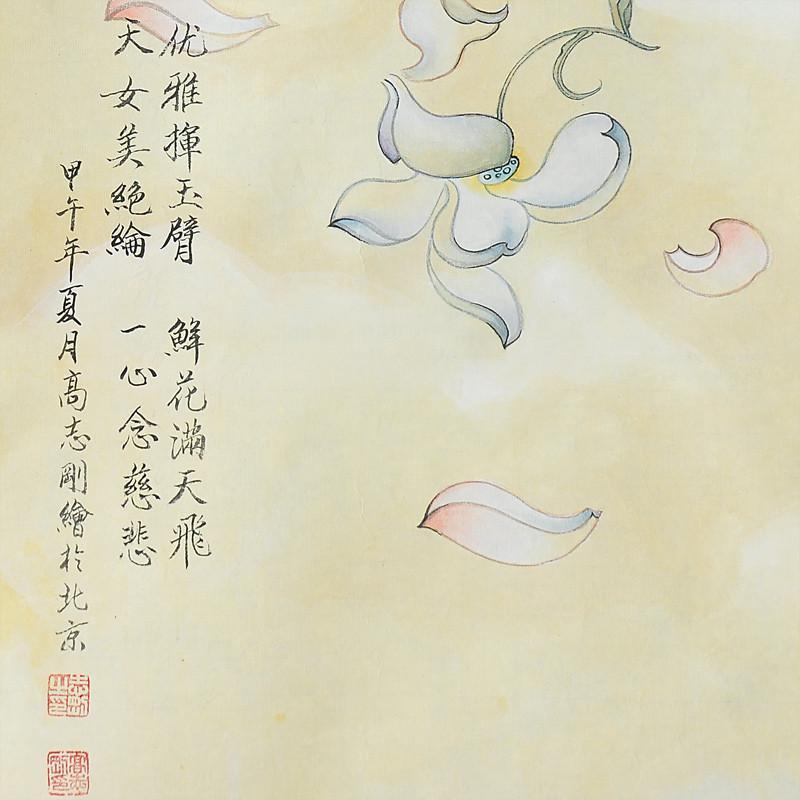 优雅揮玉臂 鮮花滿天飛
天女美絕綸 一心念慈悲
甲午年夏月高志剛繪於北京